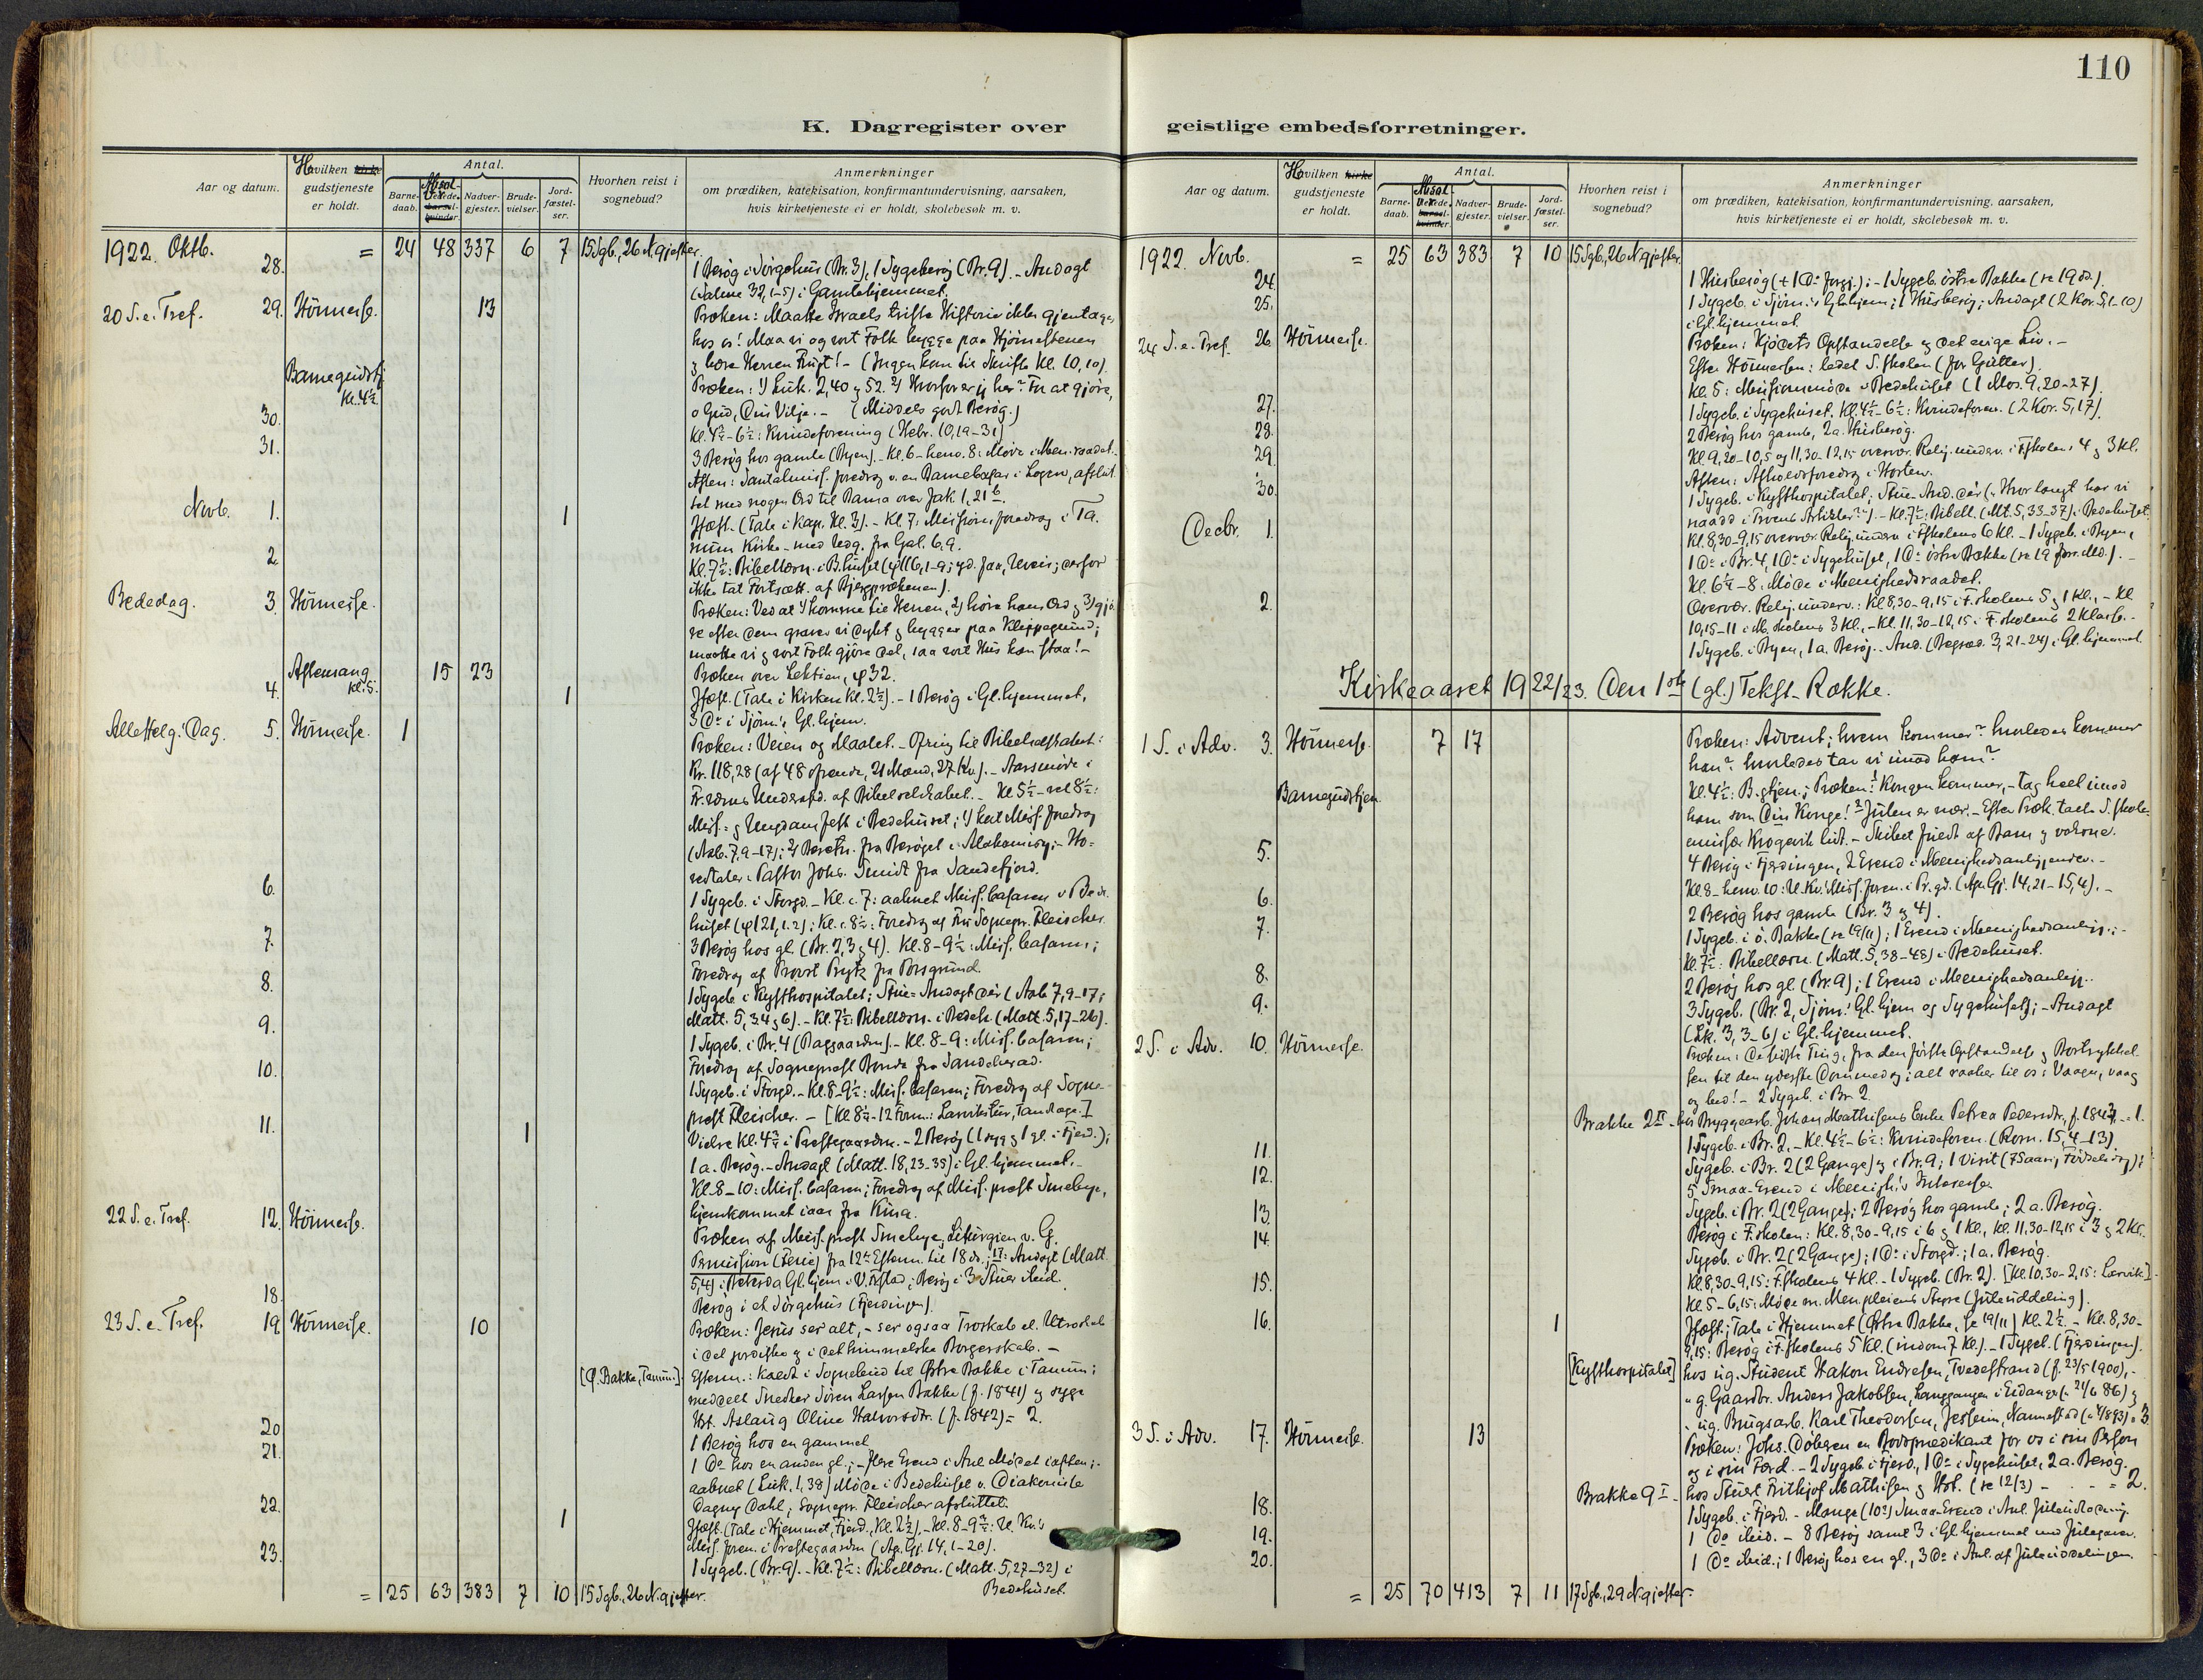 110
K. Dagregister over
geistlige embedsforretninger.
Aar og datum.
Hvilken kirke
gudstjeneste
er holdt.
Antal.
Barne-
daab.
Absol-
verede.
Nadver-
gjester.
Brude-
vielser.
Jord-
fæstel-
ser.
Hvorhen reist i
sognebud?
Anmerkninger
om prædiken, katekisation, konfirmantundervisning, aarsaken,
hvis kirketjeneste ei er holdt, skolebesøk m. v.
1922. Oktb. = 24 48 337 6 7 15 Sgb., 26 N.gjester.
28. 1 Besøg i Sørgehus (Br. 3), 1 Sygebesøg (Br. 9). - Andagt
(Salme 32, 1-5) i Gamlehjemmet.
20 S. e. Tref. 29. Höimesse. 13 Præken: Maatte Israels triste Historie ikke gjentages
hos os! Maa vi og vort Folk bygge paa Hjörnestenen
og bære Herren Frugt! - (Ingen kom til Skrifte Kl. 10,10)
Barnegudstj. Kl. 4½ Præken: 1) Luk. 2,40 og 52. 2) Hvorfor er jeg her? For at gjöre,
o Gud, Din Vilje. - (Middels godt Besøg.)
30. Kl. 4½-6½: Kvindeforening (Hebr. 10,19-31)
31. 3 Besøg hos gamle (Byen). - Kl. 6 - henv. 8: Möde i Men.raadet.
Aften: Santalmis. foredrag v. en Barnebasar i Logen, afslut-
tet med nogen Ord til Barna over Jak. 1, 21 b.
Novb. 1. 1 Jfæst. (Tale i Kap. Kl. 3). - Kl. 7: Missionsforedrag i Ta-
num Kirke - med Udg. fra Gal. 6,9.
2. Kl. 7½: Bibellæsn. i B.huset
ikke tat Fortsætt. af Bjergprækenen).
Bededag. 3. Höimesse. Præken: Ved at 1) komme til Herren, 2) höre hans Ord og 3) gjö-
re efter dem graver vi dybt og bygger paa Klippegrund;
maatte vi og vort Folk gjöre det, saa vort Hus kan staa! -
Aftensang Kl. 5. 15 23 Præken over Lektien, ψ 32.
4. 1 Jfæst. (Tale i Kirken Kl. 2½). - 1 Besøg i Gl.hjemmet,
3 Do i Sjöm.'s Gl.hjem.
Alle Helg. Dag. 5. Höimesse. 1 Præken: Veien og Maalet. - Ofring til Bibelselskabet:
Kr. 118,28 (af 48 ofrende, 21 Mænd, 27 Kv.). - Aarsmöde i
Br.ædnes Underafd. af Bibelselskabet. - Kl. 5½ - vel 8½:
Miss.- og Ungdomsfest i Bedehuset; 1) kort Miss.foredrag
(Aab. 7,9-17); 2) Beretn. fra Besøget - Ho-
vedtaler: Pastor Johs. Smidt fra Sandefjord.
6. 1 Sygeb. i Storgd. - Kl. c. 7: aabnet Miss.basaren i Bede-
huset (ψ 121, 1.2); Kl. c. 8½: Foredrag af Fru Sognepr. Fleischer.
7. 3 Besøg hos gl. (Br. 2, 3 og 4). Kl. 8-9½: Miss.basaren;
Foredrag af Provst Prytz fra Porsgrund.
8. 1 Sygeb. i Kysthospitalet; Stue-Andagt dér (Aab. 7,9-17;
Matt. 5, 3.4 og 6). - Kl. 7½: Bibellæsn. i Bedeh. (Matt. 5,17-26).
9. 1 Sygeb. i Br. 4 (Baggaarden). - Kl. 8-9: Miss.basaren;
Foredrag af Sogneprest Bonde fra Sandeherad.
10. 1 Sygeb. i Storgd. - Kl. 8-9½: Miss.basaren; Foredrag af Sogne-
prest Fleischer. - [Kl. 8½-12 Form.: Larvikstur, Tandlæge.]
11. 1 Vielse Kl. 4¾ i Prestegaarden. - 2 Besøg (1 syg og 1 gl. i Fjerd.);
1 a. Besøg. - Andagt (Matt. 18, 23-35) i Gl.hjemmet. -
Kl. 8-10: Miss.basaren; Foredrag af Miss.prest Smebye,
hjemkommet iaar fra Kina.
22 S. e. Tref. 12. Höimesse. Præken af Miss.prest Smebye, Liturgien v. G.
Permission (Ferie) fra 12te Efterm. til 18 ds.; 17: Andagt (Matt.
5,4) i Gl.hjem i V.; Besøg i 3 Stuer ibid.
18. Besøg i et Sörgehus (Fjerdingen).
23 S. e. Tref. 19. Höimesse. 10 Præken: Jesus ser alt, - ser ogsaa Troskab el. Utroskab
i det jordiske og i det himmelske Borgerskab. -
[Ø. Bakke, Tanum] Efterm.: Kaldt i Sognebud til Østre Bakke i Tanum;
meddelt Snedker Sören Larsen Bakke (f. 1841) og syge
Hst. Aslaug Oline Halvorsdtr. (f. 1842) = 2.
20. 1 Besøg hos en gammel.
21. 1 Do hos en anden gl.; - flere Erend i Anl. Mödet iaften; -
aabnet (Luk. 1,38) Möde i Bedehuset v. Diakonisse
Dagny Dahl; Sognepr. Fleischer afsluttet.
22. 1 Jfæst. (Tale i Hjemmet, Fjerd., Kl. 2½). - Kl. 8-9¾: U. Kv.'s
Miss.foren. i Prestegaarden (Ap. Gj. 14, 1-20).
23. 1 Sygeb. (Br. 9). - Kl. 7½: Bibellæsn. (Matt. 5, 27-32) i
Bedehuset.
= 25 63 383 7 10 15 Sgb., 26 N.gjester.
Aar og datum.
Hvilken kirke
gudstjeneste
er holdt.
Antal.
Barne-
daab.
Absol-
verede.
Nadver-
gjester.
Brude-
vielser.
Jord-
fæstel-
ser.
Hvorhen reist i
sognebud?
Anmerkninger
om prædiken, katekisation, konfirmantundervisning, aarsaken,
hvis kirketjeneste ei er holdt, skolebesøk m. v.
1922. Novb. = 25 63 383 7 10 15 Sgb., 26 N.gjester.
24. 1 Husbesøg (+ 1 Do forgj.); - 1 Sygeb. östre Bakke (se 19 ds.).
25. 1 Sygeb. i Sjöm.'s Gl.hjem; 1 Husbesøg; Andagt (2 Kor. 5, 1-10)
i Gl.hjemmet.
24 S. e. Tref. 26. Höimesse. Præken: Kjödets Opstandelse og det evige Liv. -
Efter Höimessen: ledet S.skolen (for Gutter).
Kl. 5: Missionsmöde i Bedehuset (1 Mos. 9, 20-27).
27. 1 Sygeb. i Sygehuset. Kl. 4½-6½: Kvindeforen. (2 Kor. 5,17).
28. 2 Besøg hos gamle, 2 a. Husbesøg.
29. Kl. 9,20-10,5 og 11,30-12,15 overvær. Relig.underv. i F.skolens 4 og 3 Kl.
Aften: Afholdsforedrag i Horten.
30. 1 Sygeb. i Kysthospitalet; Stue-And. dér ("Hvor langt har vi
naadd i Troens Artikler?"). - Kl. 7½: Bibell. (Mt. 5, 33-37) i Bedehuset.
Decbr. 1. Kl. 8,30-9,15 overvær. Relig.underv. i F.skolens 6 Kl. - 1 Sygeb. i Byen,
1 Do i Br. 4, 1 Do i Sygehuset, 1 Do östre Bakke (se 19 forr. Md.). -
Kl. 6½-8: Möde i Menighedsraadet.
2. Overvær. Relig.underv.: Kl. 8,30-9,15 i F.skolens 5 og 1 Kl., - Kl.
10,15-11 i M.skolens 3 Kl., - Kl. 11,30-12,15 i F.skolens 2 Klasse. -
1 Sygeb. i Byen, 1 a. Besøg. - And. (Begræd. 3, 21-24) i Gl.hjemmet.
Kirkeaaret 1922/23. Den 1ste (gl.) Tekst-Række.
1 S. i Adv. 3. Höimesse. 7 17 Præken: Advent; hvem kommer? hvorledes kommer
han? hvorledes tar vi imod ham?
Barnegudstjen. Kl. 4½: B.gtjen.; Præken: 1) Kongen kommer, - tag heel imod
ham som Din Konge! 2) Julen er nær. - Efter Præk. talte S.skole-
emissær Krogevik lidt. - Skibet fuldt af Barn og voksne.
5. 4 Besøg i Fjerdingen, 2 Erend i Menighedsanliggender. -
Kl. 8 - henv. 10: U. Kv. Miss.foren. i Pr.gd. (Ap. Gj. 14,21-15,4). -
6. 2 Besøg hos gamle (Br. 3 og 4).
7. 1 Sygeb. i ö. Bakke (se 19/11); 1 Erend i Menighedsanligg.; -
Kl. 7½: Bibellæsn. (Matt. 5, 38-48) i Bedehuset.
8. 2 Besøg hos gl. (Br. 9); 1 Erend i Menighedsanligg.
9. 3 Sygeb. (Br. 2, Sjöm.' Gl.hjem og Sygehuset); - Andagt
(Lk. 3, 3-6) i Gl.hjemmet.
2 S. i Adv. 10. Höimesse. Præken: De sidste Ting, fra den förste Opstandelse og Bortrykkel-
sen til den yderste Dommedag; alt raaber til os: Vaagn, vaag
og bed! - 2 Sygeb. i Br. 2.
Brakke 2 II - hos Bryggearb. Johan Mathisens Enke Petrea Pedersdtr. f. 1847. = 1.
11. 1 Sygeb. i Br. 2. - Kl. 4½-6½: Kvindeforen. (Rom. 15, 4-13).
12. Sygeb. i Br. 2 (2 Gange) og i Br. 9; 1 Visit (75aarig Födselsdag);
5 Smaa-Erend i Menigh.'s Interesse.
13. Sygeb. i Br. 2 (2 Gange); 2 Besøg hos gamle; 2 a. Besøg.
14. Besøg i F.skolen: Kl. 8,30-9,15 i 6 og 1 Kl., Kl. 11,30-12,15 i 3 og 2 Kl.
Sygeb. i Br. 2 (2 Gange); 1 Do i Storgd.; 1 a. Besøg.
15. Kl. 8,30-9,15: F.skolens 4 Kl. - 1 Sygeb. (Br. 2). [Kl. 10,30-2,15: Larvik].
Kl. 5-6,15: Möde m. Men.pleiens Styre (Juleuddeling).
16. 1 Jfæst.; Tale i Hjemmet (Østre Bakke, se 19/11) Kl. 2½. - Kl. 8,30-
9,15: Besøg i F.skolens 5 Kl. (indom 7 Kl.). - 1 Sygeb. (Fjerdingen).
[Kysthospitalet] hos ug. Student Hakon Endresen, Tvedestrand (f. 23/5 1900), -
" g. Gaardbr. Anders Jakobsen, Langgangen i Eidanger (" 21/6 86) og
" ug. Brugsarb. Karl Theodorsen, Jessheim, Nannestad = 3.
3 S. i Adv. 17. Höimesse. 13 Præken: Johs. Döberen en Bodsprædikant for os i sin Person
og i sin Færd. - 2 Sygeb. i Fjerd., 1 Do i Sygehuset, 2 a. Besøg.
Brakke 9 I - hos Stuert Frithjof Mathisen og Hst. (se 12/3) - - = 2.
18. 1 Sygeb. i Fjerd. - Mange (10?) Smaa-Erend i Anl. Juleuddeling.
19. 1 Do ibid. - 8 Besøg samt 3 i Gl.hjemmet med Julegaver.
20. 1 Do ibid.; 1 Besøg hos en gl., 3 Do i Anl. af Juleuddelingen.
= 25 70 413 7 11 17 Sgb., 29 N.gjester.